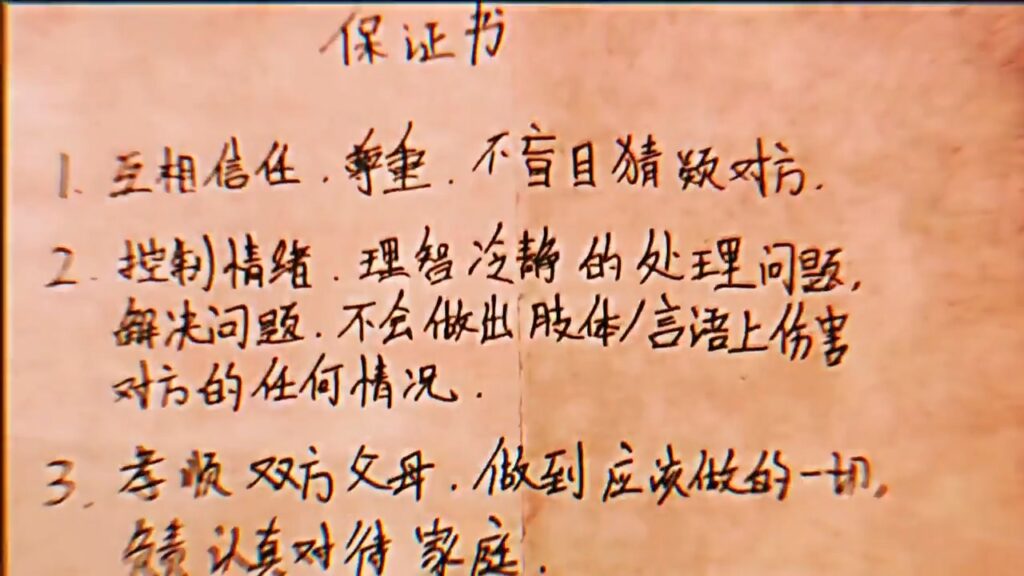 保证书
1. 互相信任.尊重.不盲目猜疑对方.
2. 控制情绪.理智冷静的处理问题,
解决问题.不会做出肢体/言语上伤害
对方的任何情况.
3. 孝顺双方父母.做到应该做的一切,
负责认真对待家庭.